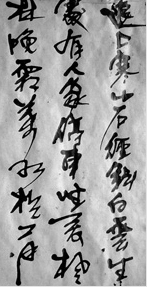 遠上寒山石徑斜白雲生
處有人家停車坐愛楓
林晚霜葉紅於二月